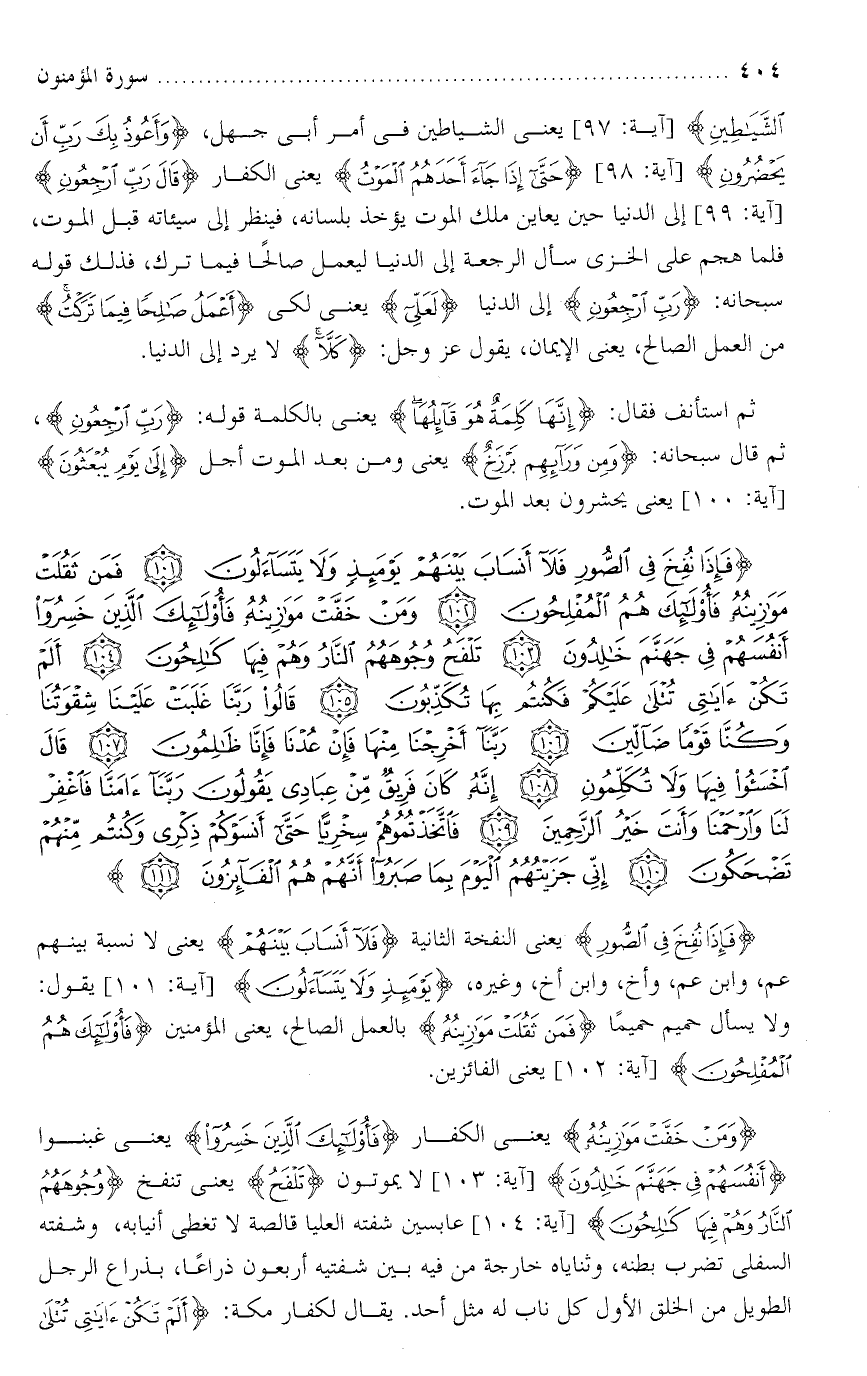 ٤٠٤ ........................................................................ سورة المؤمنون
ٱلشَّيَٰطِينِ﴾ [آيـة: ٩٧] يعنـى الشـياطين فـى أمـر أبـى جـهل، ﴿وَأَعُوذُ بِكَ رَبِّ أَن
يَحْضُرُونِ﴾ [آية: ٩٨] ﴿حَتَّىٰٓ إِذَا جَآءَ أَحَدَهُمُ ٱلْمَوْتُ﴾ يعنى الكفار ﴿قَالَ رَبِّ ٱرْجِعُونِ﴾
[آية: ٩٩] إلى الدنيا حين يعاين ملك الموت يؤخذ بلسانه، فينظر إلى سيئاته قبل الموت،
فلما هجم على الخزى سأل الرجعة إلى الدنيا ليعمل صالحًا فيما ترك، فذلك قوله
سبحانه: ﴿رَبِّ ٱرْجِعُونِ﴾ إلى الدنيا ﴿لَعَلِّىٓ﴾ يعنى لكى ﴿أَعْمَلُ صَٰلِحًا فِيمَا تَرَكْتُ ۚ﴾
من العمل الصالح، يعنى الإيمان، يقول عز وجل: ﴿كَلَّآ ۚ﴾ لا يرد إلى الدنيا.
ثم استأنف فقال: ﴿إِنَّهَا كَلِمَةٌ هُوَ قَآئِلُهَا ۖ﴾ يعنى بالكلمة قوله: ﴿رَبِّ ٱرْجِعُونِ﴾،
ثم قال سبحانه: ﴿وَمِن وَرَآئِهِم بَرْزَخٌ﴾ يعنى ومن بعد الموت أجل ﴿إِلَىٰ يَوْمِ يُبْعَثُونَ﴾
[آية: ١٠٠] يعنى يحشرون بعد الموت.
﴿فَإِذَا نُفِخَ فِى ٱلصُّورِ فَلَآ أَنسَابَ بَيْنَهُمْ يَوْمَئِذٍ وَلَا يَتَسَآءَلُونَ ١٠١ فَمَن ثَقُلَتْ
مَوَٰزِينُهُۥ فَأُو۟لَٰٓئِكَ هُمُ ٱلْمُفْلِحُونَ ١٠٢ وَمَنْ خَفَّتْ مَوَٰزِينُهُۥ فَأُو۟لَٰٓئِكَ ٱلَّذِينَ خَسِرُوٓا۟
أَنفُسَهُمْ فِى جَهَنَّمَ خَٰلِدُونَ ١٠٣ تَلْفَحُ وُجُوهَهُمُ ٱلنَّارُ وَهُمْ فِيهَا كَٰلِحُونَ ١٠٤ أَلَمْ
تَكُنْ ءَايَٰتِى تُتْلَىٰ عَلَيْكُمْ فَكُنتُم بِهَا تُكَذِّبُونَ ١٠٥ قَالُوا۟ رَبَّنَا غَلَبَتْ عَلَيْنَا شِقْوَتُنَا
وَكُنَّا قَوْمًا ضَآلِّينَ ١٠٦ رَبَّنَآ أَخْرِجْنَا مِنْهَا فَإِنْ عُدْنَا فَإِنَّا ظَٰلِمُونَ ١٠٧ قَالَ
ٱخْسَـُٔوا۟ فِيهَا وَلَا تُكَلِّمُونِ ١٠٨ إِنَّهُۥ كَانَ فَرِيقٌ مِّنْ عِبَادِى يَقُولُونَ رَبَّنَآ ءَامَنَّا فَٱغْفِرْ
لَنَا وَٱرْحَمْنَا وَأَنتَ خَيْرُ ٱلرَّٰحِمِينَ ١٠٩ فَٱتَّخَذْتُمُوهُمْ سِخْرِيًّا حَتَّىٰٓ أَنسَوْكُمْ ذِكْرِى وَكُنتُم مِّنْهُمْ
تَضْحَكُونَ ١١٠ إِنِّى جَزَيْتُهُمُ ٱلْيَوْمَ بِمَا صَبَرُوٓا۟ أَنَّهُمْ هُمُ ٱلْفَآئِزُونَ ١١١﴾
﴿فَإِذَا نُفِخَ فِى ٱلصُّورِ﴾ يعنى النفخة الثانية ﴿فَلَآ أَنسَابَ بَيْنَهُمْ﴾ يعنى لا نسبة بينهم
عم، وابن عم، وأخ، وابن أخ، وغيره، ﴿يَوْمَئِذٍ وَلَا يَتَسَآءَلُونَ﴾ [آية: ١٠١] يقول:
ولا يسأل حميم حميمًا ﴿فَمَن ثَقُلَتْ مَوَٰزِينُهُۥ﴾ بالعمل الصالح، يعنى المؤمنين ﴿فَأُو۟لَٰٓئِكَ هُمُ
ٱلْمُفْلِحُونَ﴾ [آية: ١٠٢] يعنى الفائزين.
﴿وَمَنْ خَفَّتْ مَوَٰزِينُهُۥ﴾ يعنـى الكفـار ﴿فَأُو۟لَٰٓئِكَ ٱلَّذِينَ خَسِرُوٓا۟﴾ يعنـى غبنـوا
﴿أَنفُسَهُمْ فِى جَهَنَّمَ خَٰلِدُونَ﴾ [آية: ١٠٣] لا يموتون ﴿تَلْفَحُ﴾ يعنى تنفخ ﴿وُجُوهَهُمُ
ٱلنَّارُ وَهُمْ فِيهَا كَٰلِحُونَ﴾ [آية: ١٠٤] عابسين شفته العليا قالصة لا تغطى أنيابه، وشفته
السفلى تضرب بطنه، وثناياه خارجة من فيه بين شفتيه أربعون ذراعًا، بذراع الرجل
الطويل من الخلق الأول كل ناب له مثل أحد. يقال لكفار مكة: ﴿أَلَمْ تَكُنْ ءَايَٰتِى تُتْلَىٰ